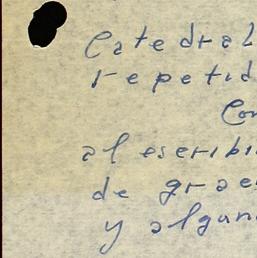 Catedral
repetid
Con
al escribi
de grac
y algun